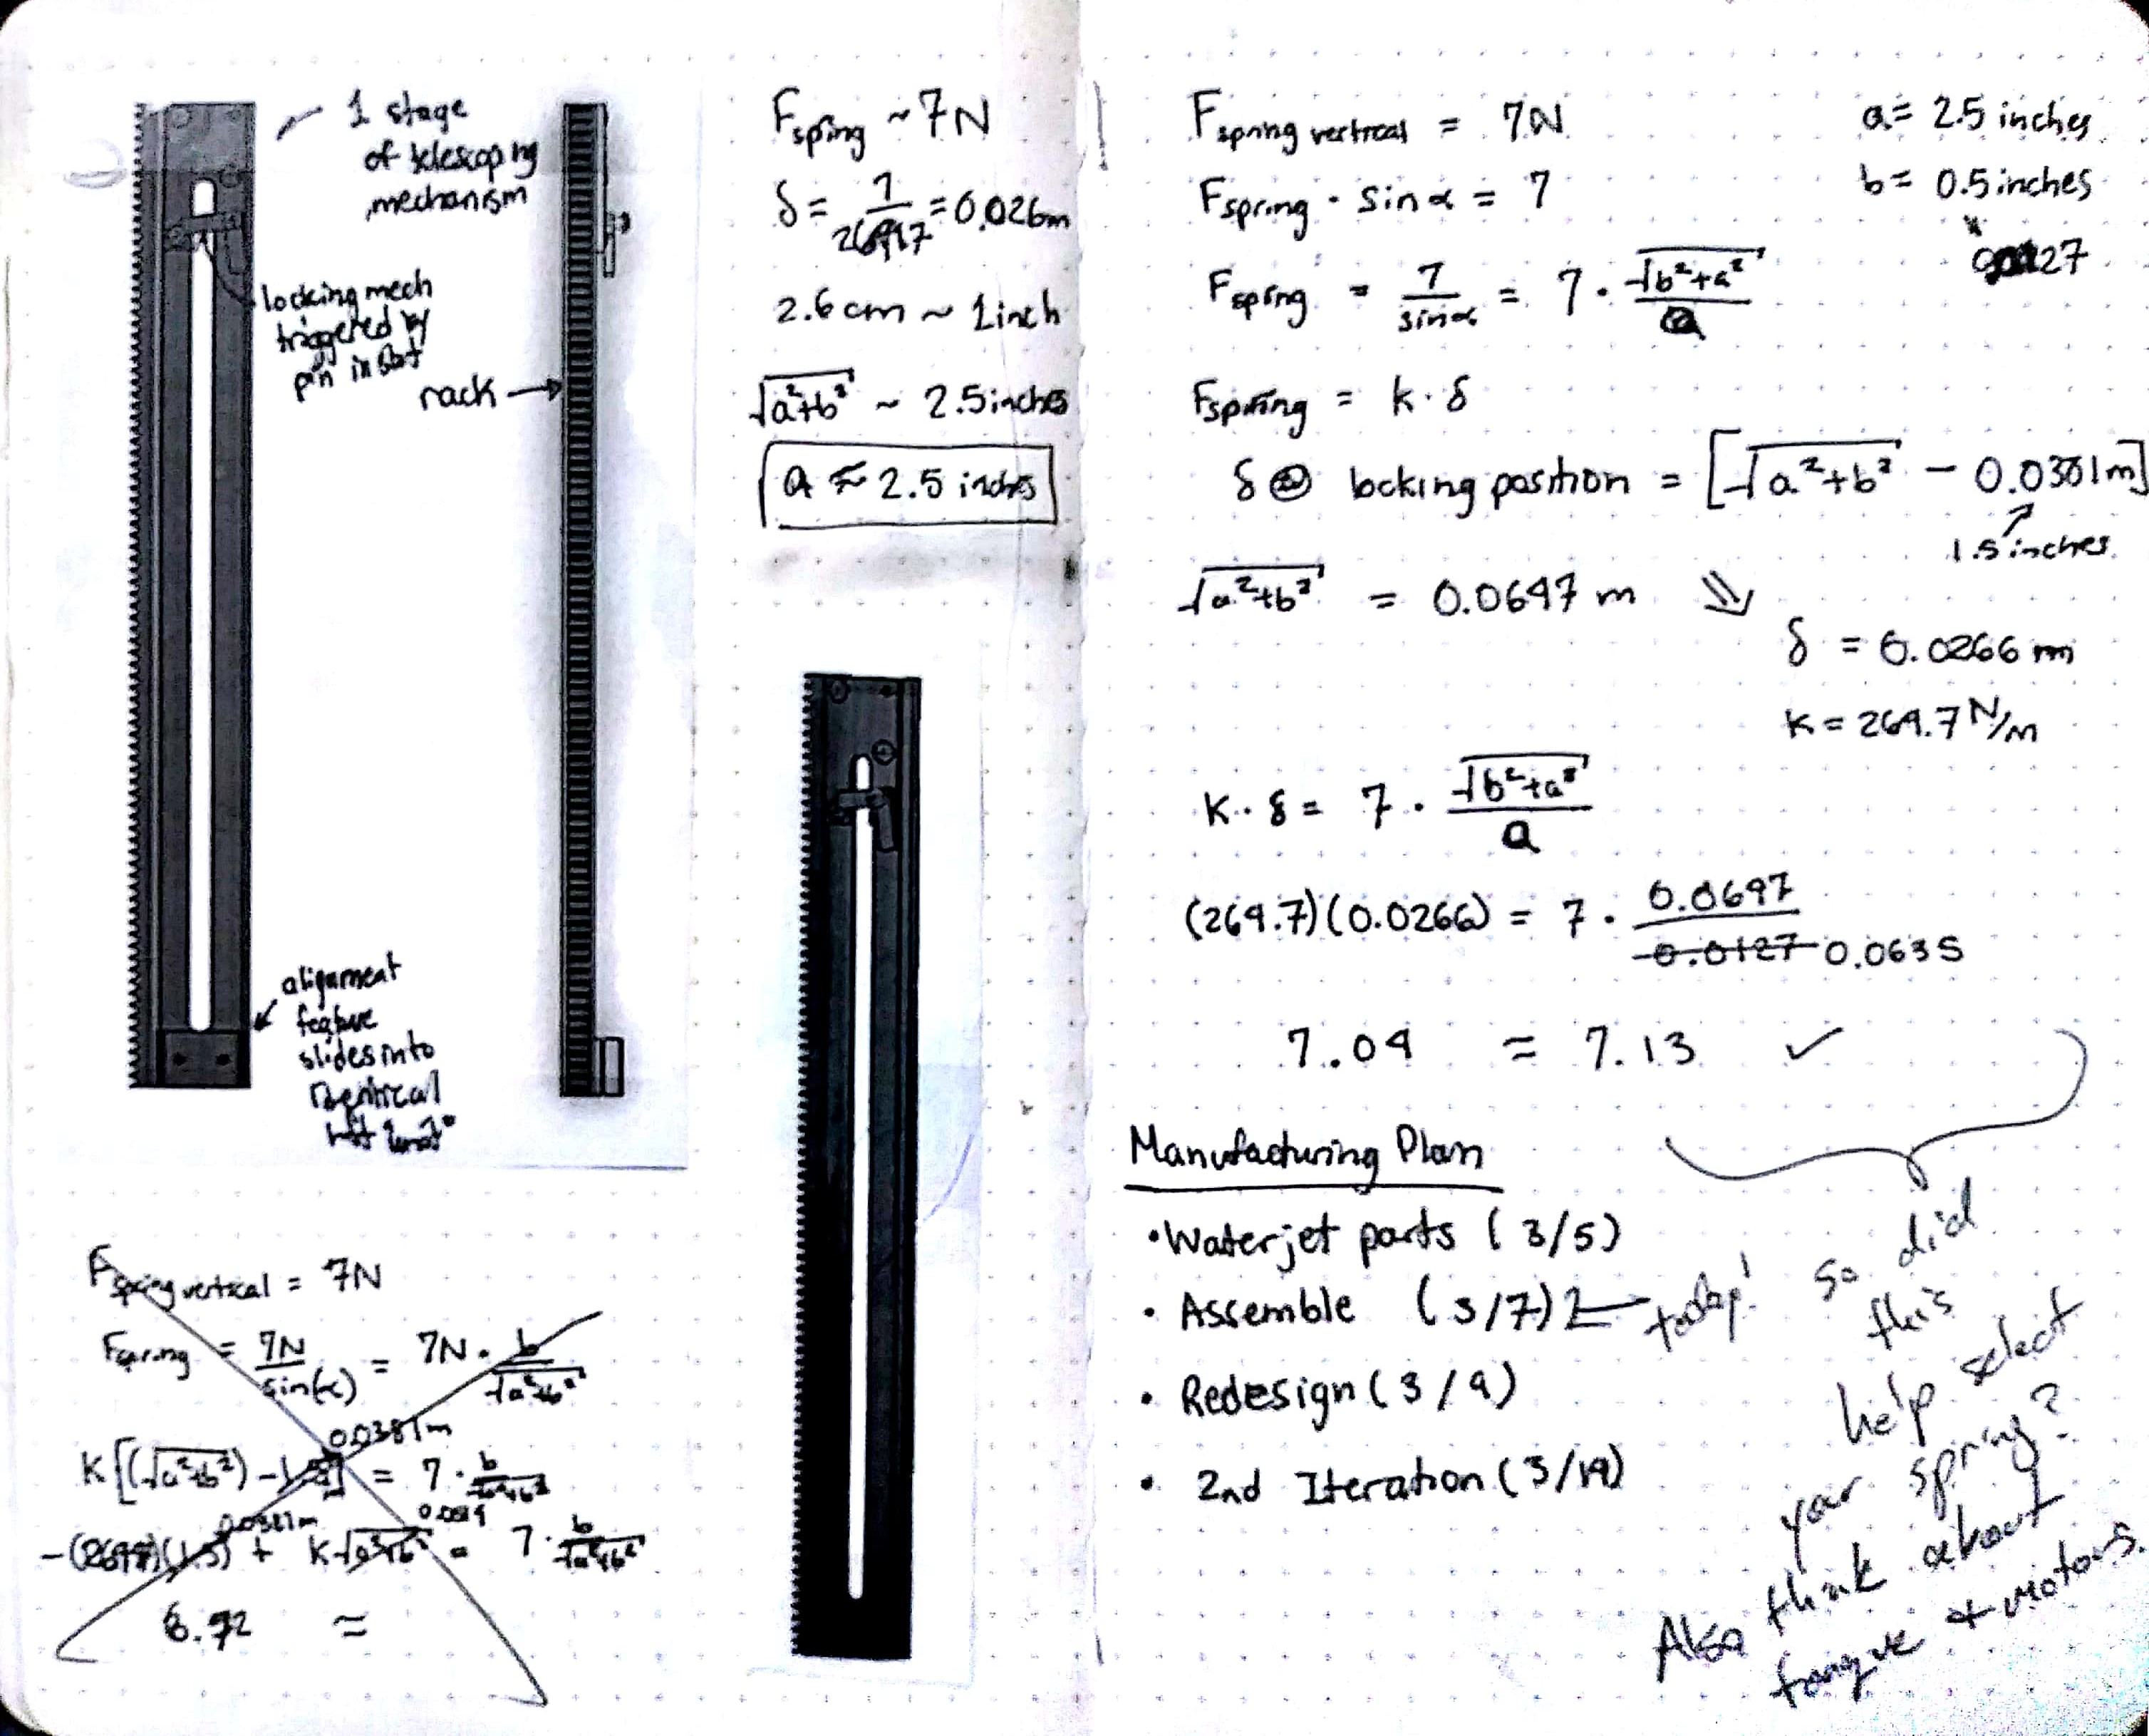 1 stage
of telescoping
mechanism
locking mech
triggered by
pin in slot
rack →
alignment
feature
slides into
identical
F spring ~ 7N
δ = 7 / = 0.026m
2.6cm ~ 1 inch
√a²+b² ~ 2.5 inches
a ≈ 2.5 inches
F spring vertical = 7N
F spring = 7N / sin(α) = 7N · b / √a²+b²
0.0381m
K[(√a²+b²) - ] = 7 · b / √a²+b²
0.0381m
+ K√a²+b² = 7 · b / √a²+b²
6.92 ≈
F spring vertical = 7N
a = 2.5 inches
F spring · sin α = 7
b = 0.5 inches
F spring = 7 / sin α = 7 · √b²+a² / a
F spring = k · δ
δ @ locking position = [√a²+b² - 0.0381m]
1.5 inches
√a²+b² = 0.0647 m
δ = 0.0266 m
K = 269.7 N/m
K · δ = 7 · √b²+a² / a
(269.7)(0.0266) = 7 · 0.0697 / 0.0127 0.0635
7.09 ≈ 7.13 ✓
Manufacturing Plan
• Waterjet parts (3/5)
• Assemble (3/7) today!
• Redesign (3/9)
• 2nd Iteration (3/19)
so did
this
help select
your spring?
Also think about
torque + motors.